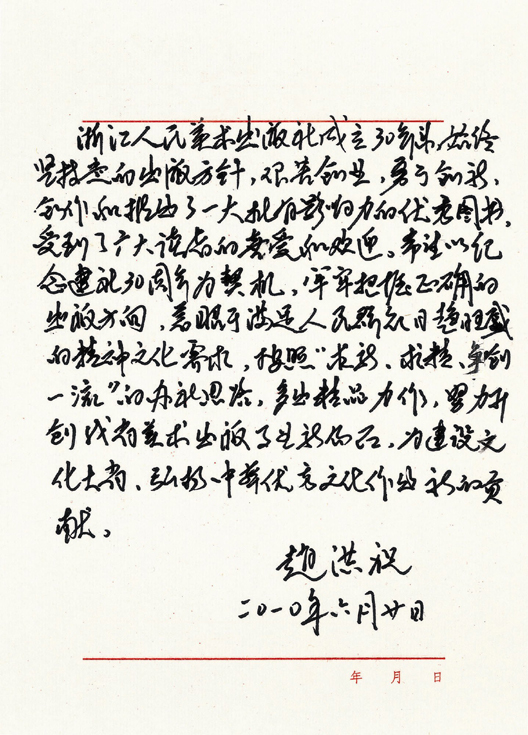 浙江人民美术出版社成立30年来,始终
坚持正确的出版方针,艰苦创业,勇于创新,
创作和推出了一大批有影响力的优秀图书,
受到了广大读者的喜爱和欢迎。希望以纪
念建社30周年为契机,牢牢把握正确的
出版方向,着眼于满足人民群众日趋旺盛
的精神文化需求,按照"求新、求精、争创
一流"的办社思路,多出精品力作,努力开
创我省美术出版事业新局面,为建设文
化大省、弘扬中华优秀文化作出新的贡
献。
赵洪祝
二〇一〇年六月廿日
年 月 日